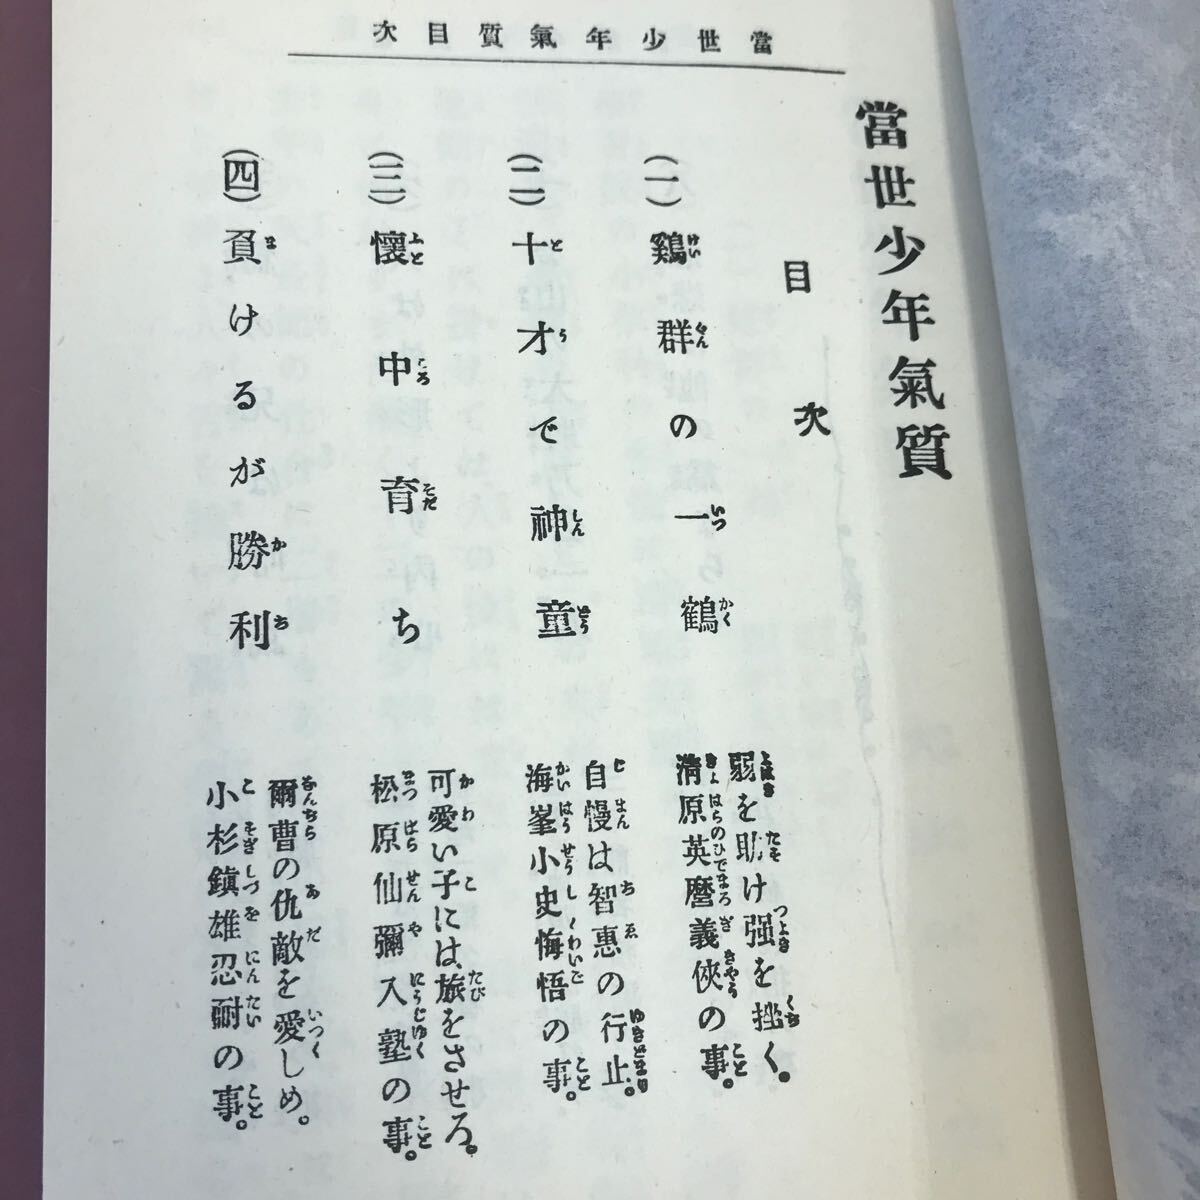 當世少年氣質目次
當世少年氣質
目次
(一)鷄群の一鶴
弱を助け强を挫く。
淸原英麿義俠の事。
(二)十才で神童
自慢は智惠の行止。
海峯小史悔悟の事。
(三)懷中育ち
可愛い子には旅をさせろ。
松原仙彌入塾の事。
(四)負けるが勝利
爾曹の仇敵を愛しめ。
小杉鎭雄忍耐の事。